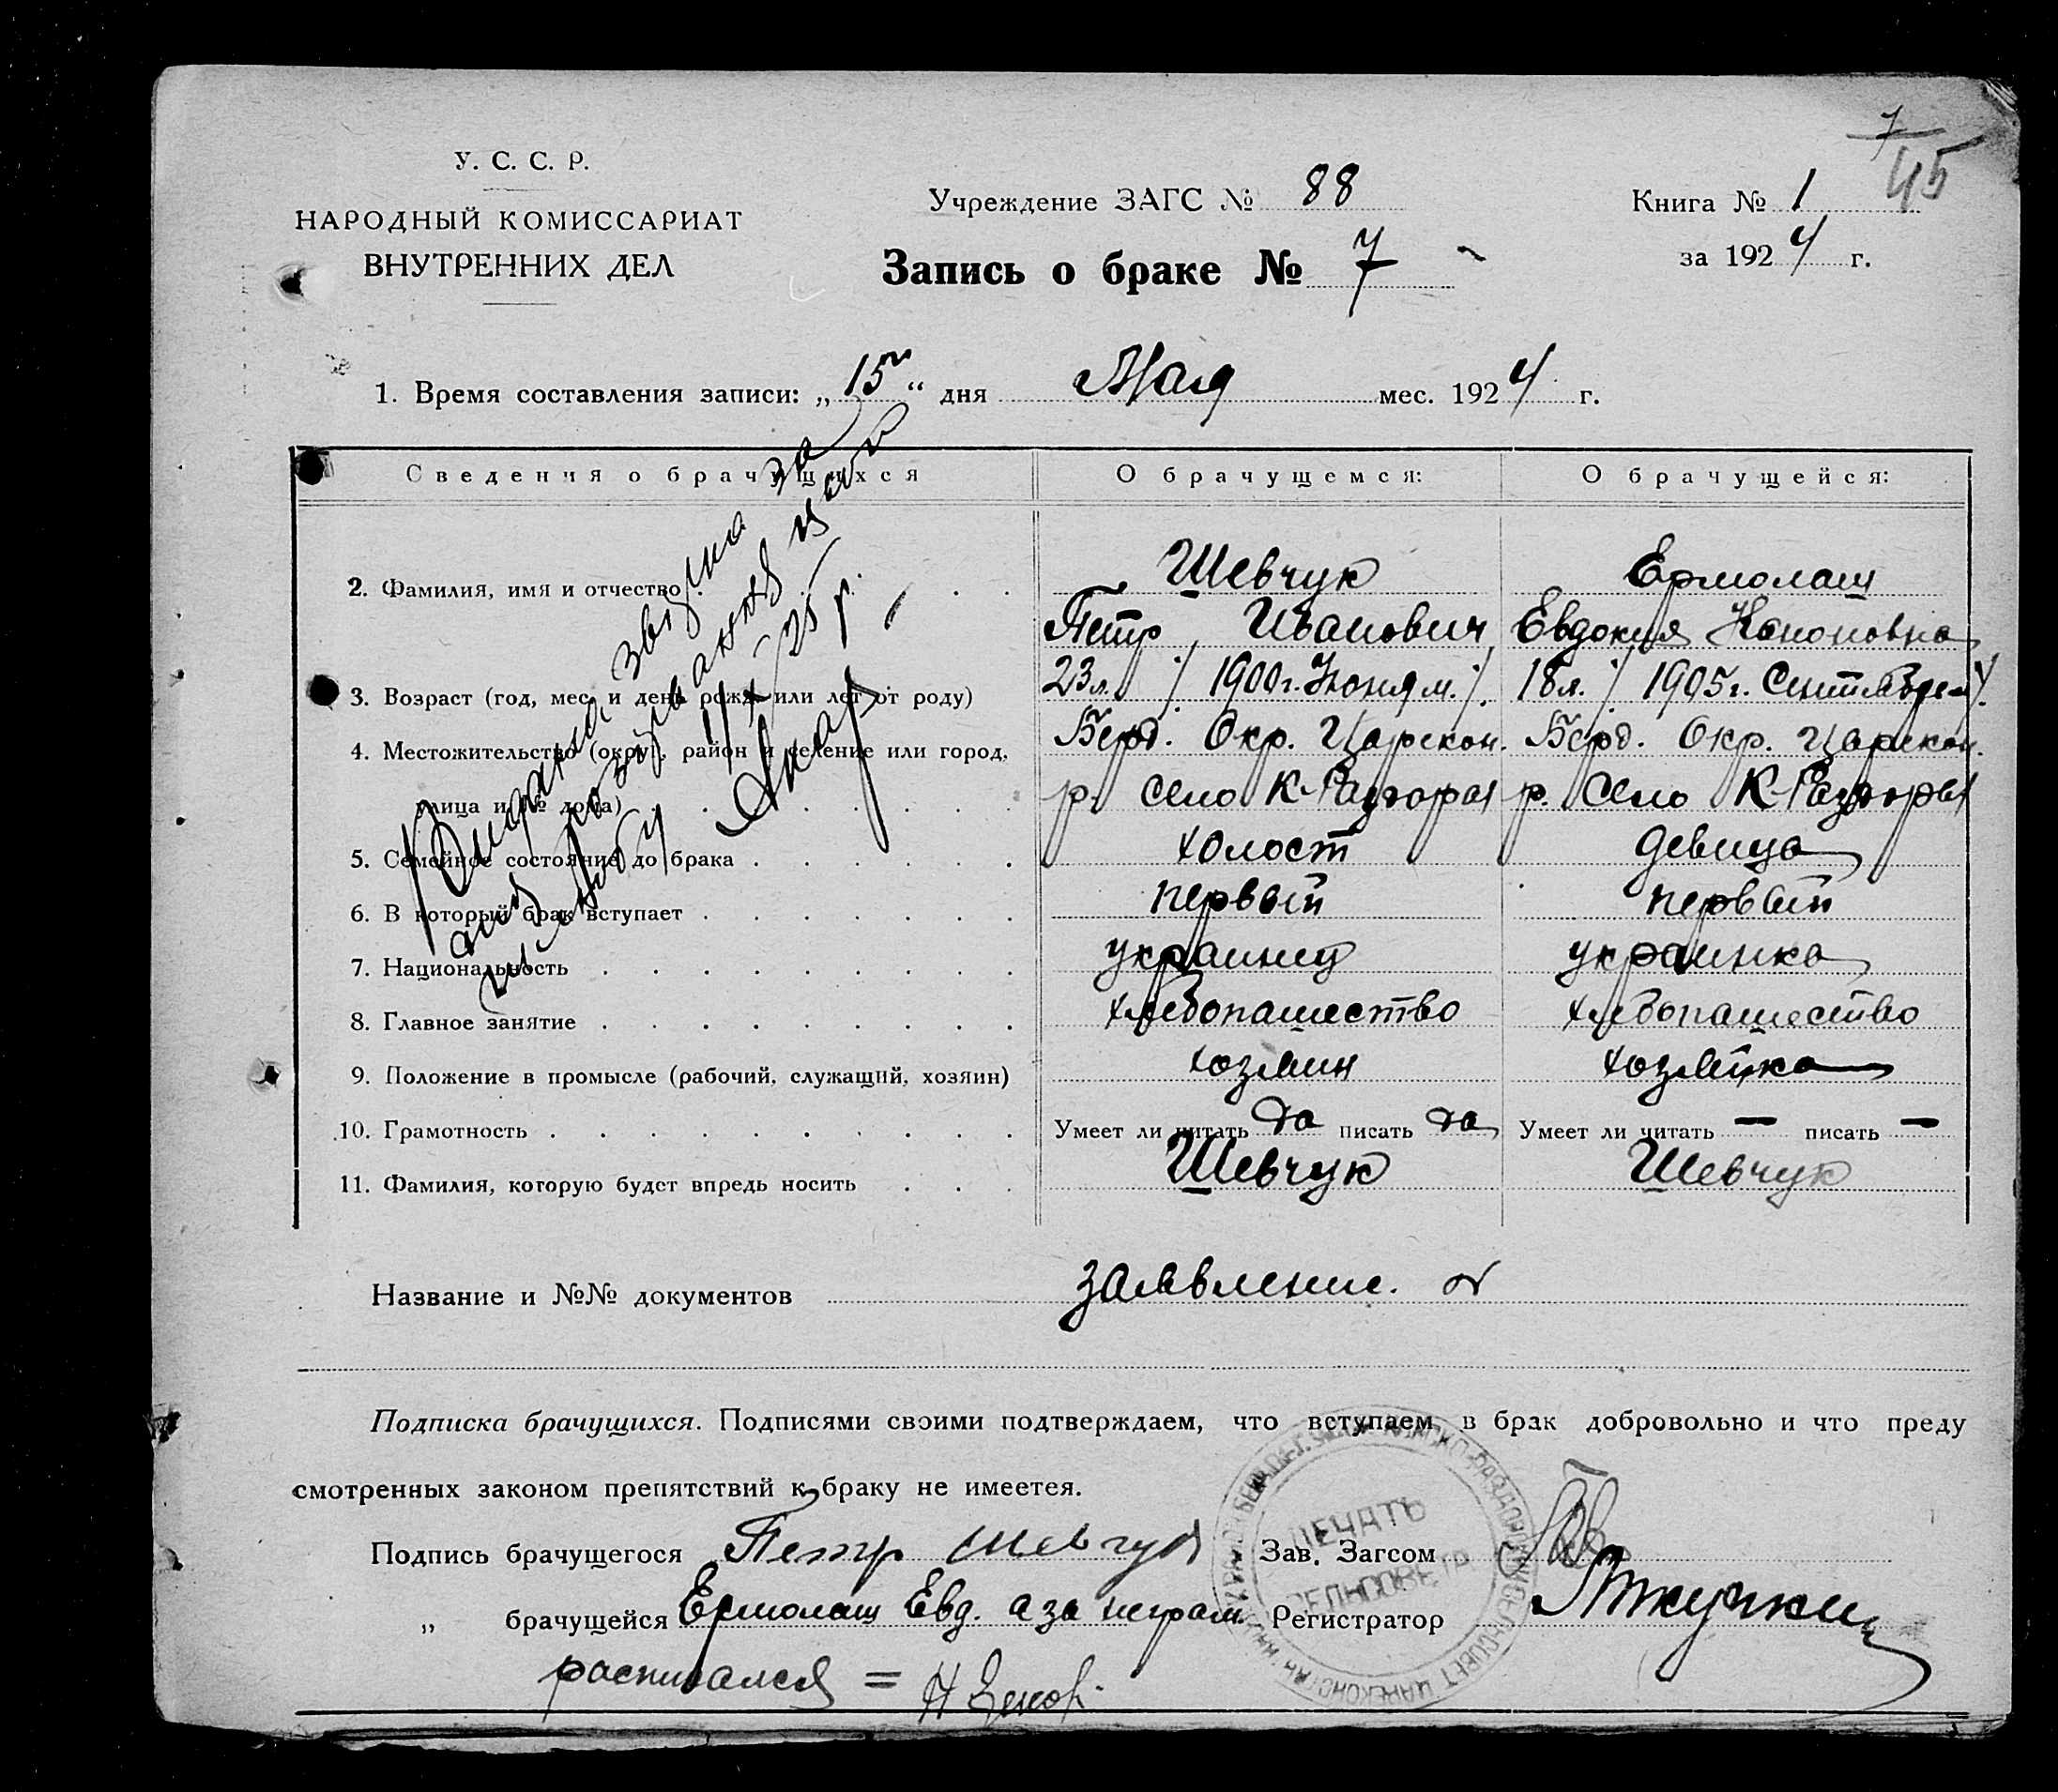 7
45
У. С. С. Р.
НАРОДНЫЙ КОМИССАРИАТ
ВНУТРЕННИХ ДЕЛ
Учреждение ЗАГС № 88
Книга № 1
за 1924 г.
Запись о браке № 7
1. Время составления записи: „15“ дня Мая мес. 1924 г.
Сведения о брачущихся О брачущемся: О брачущейся:
2. Фамилия, имя и отчество Шевчук Ермолаш
Петр Иванович Евдокия Кононовна
3. Возраст (год, мес. и день рожд. или лет от роду) 23л. /1900г. Июня м./ 18л. /1905г. Сентября/
4. Местожительство (округ, район и селение или город, Берд. Окр. Царекон. Берд. Окр. Царекон.
улица и № дома) р. село К-Раздоры р. село К-Раздоры
5. Семейное состояние до брака холост девица
6. В который брак вступает первый первый
7. Национальность украинец украинка
8. Главное занятие хлебопашество хлебопашество
9. Положение в промысле (рабочий, служащий, хозяин) хозяин хозяйка
10. Грамотность Умеет ли читать да писать да Умеет ли читать — писать —
11. Фамилия, которую будет впредь носить Шевчук Шевчук
Название и №№ документов заявление.
Подписка брачущихся. Подписями своими подтверждаем, что вступаем в брак добровольно и что преду
смотренных законом препятствий к браку не имеется.
Подпись брачущегося Петр Шевчук Зав. Загсом
„ брачущейся Ермолаш Евд. а за неграм. Регистратор
расписался =
ПЕЧАТЬ
СЕЛЬСОВЕТА